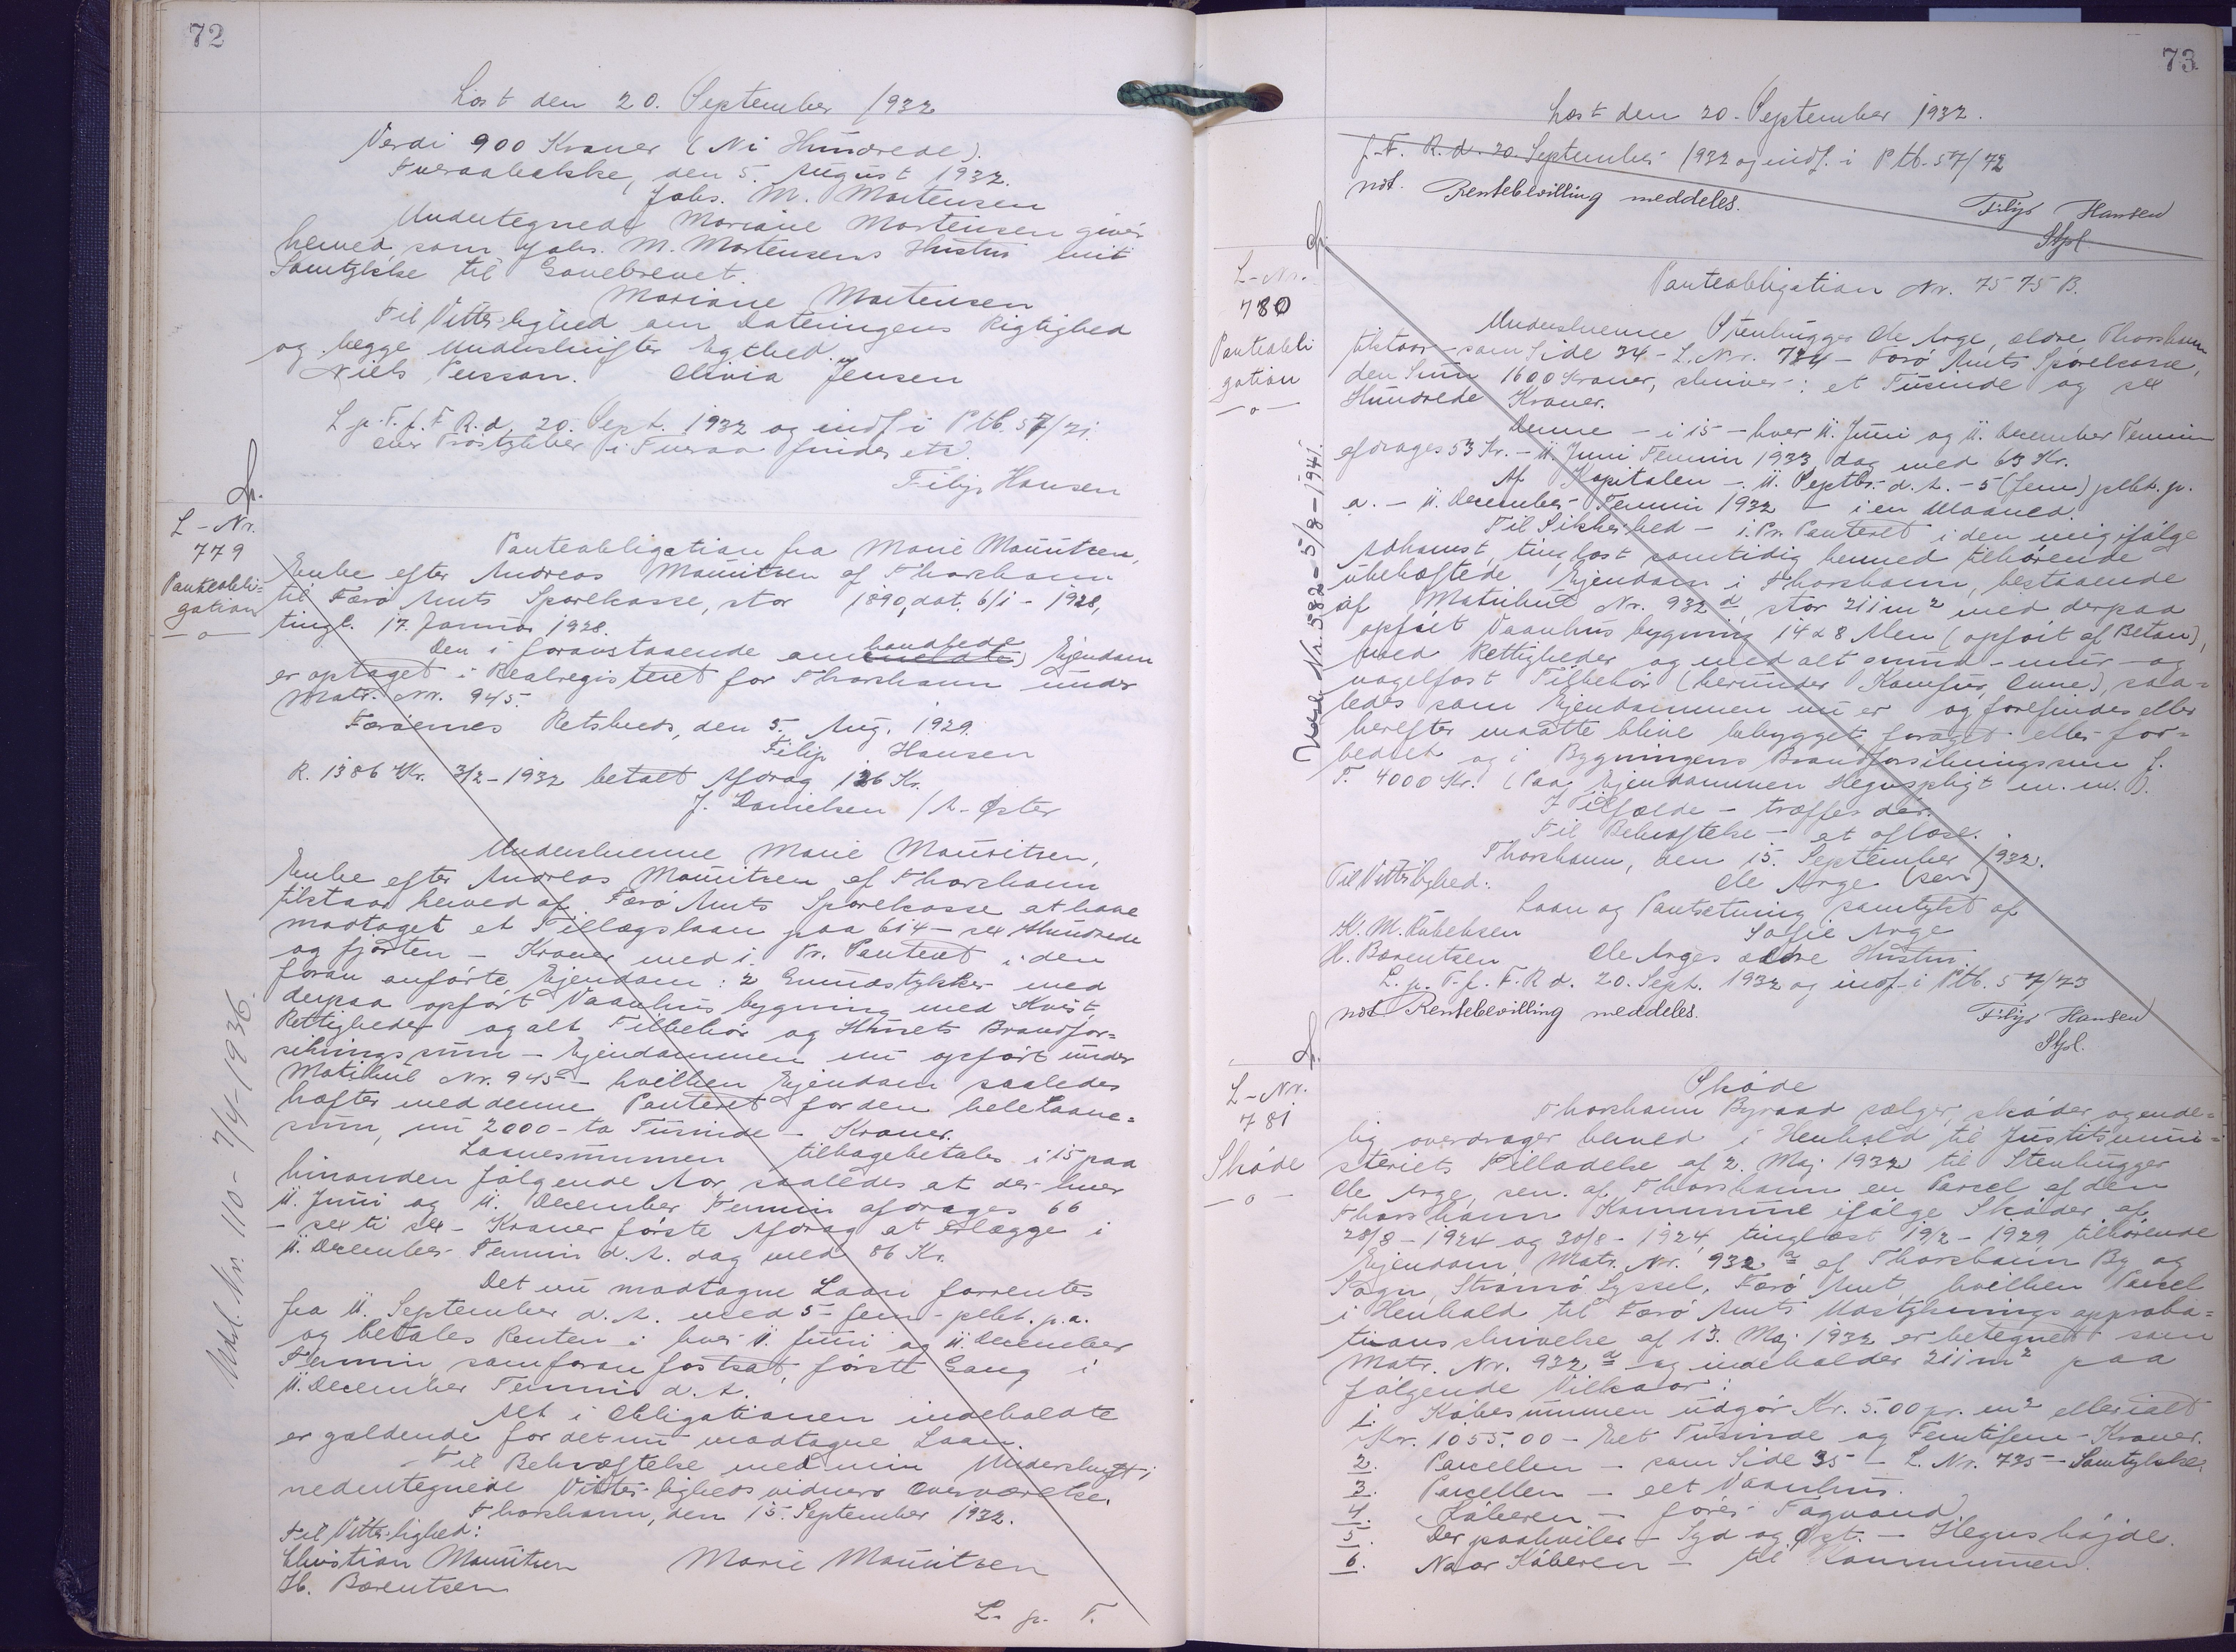 72
Læst den 20. September 1932
Verdi 900 Kroner (Ni Hundrede).
Tveraabakke, den 5. August 1932.
Johs. M. Mortensen
Undertegnede Mariane Mortensen giver
herved som Johs. M. Mortensens Hustru mit
Samtykke til Gavebrevet.
Mariane Mortensen
Til Vitterlighed om Dateringens Rigtighed
og begge Underskrifters Ægthed.
Niels Persson. Olivia Jensen
L. p. T. f. F. R. d. 20. Sept. 1932 og indf. i Ptb. 57/71.
Filip Hansen
L-Nr.
779
Panteobli-
gation
—o—
Panteobligation fra Marie Mouritsen,
Enke efter Andreas Mouritsen af Thorshavn
til Færø Amts Sparekasse, stor 1890, dat. 6/1-1928,
tingl. 17. Januar 1928.
Den i foranstaaende omhandlede Ejendom
er optaget i Realregisteret for Thorshavn under
Matr. Nr. 945.
Færøernes Retskreds, den 5. Aug. 1929.
Filip Hansen
R. 1386 Kr. 3/2-1932 betalt Afdrag 126 Kr.
J. Danielsen / A. Øster
Underskrevne Marie Mouritsen,
Enke efter Andreas Mouritsen af Thorshavn
tilstaar herved af Færø Amts Sparekasse at have
modtaget et Tillægslaan paa 614 - sex Hundrede
og fjorten - Kroner med 1. Pr. Panteret i den
foran anførte Ejendom: 2 Grundstykker med
derpaa opført Vaanhusbygning med Kvist,
Rettigheder og alt Tilbehør og Husets Brandfor=
sikringssum - Ejendommen nu opført under
Matrikul Nr. 945 - hvilken Ejendom saaledes
hæfter med denne Panteret for den hele Laane=
sum, nu 2000 - to Tusinde - Kroner.
Laanesummen tilbagebetales i 15 paa
hinanden følgende Aar saaledes at der hver
11. Juni og 11. December Termin afdrages 66
- sexti sex - Kroner første Afdrag at erlægge i
11. December Termin d. A. dog med 86 Kr.
Det nu modtagne Laan forrentes
fra 11. September d. A. med 5 - fem - pCt. p. a.
og betales Renten i hver 11. Juni og 11. December
Termin som foran fastsat, første Gang i
11. December Termin d. A.
Alt i Obligationen indeholdte
er gældende for det nu modtagne Laan.
Til Bekræftelse med min Underskrift i
nedentegnede Vitterlighedsvidners Overværelse.
Thorshavn, den 15. September 1932.
Til Vitterlighed:
Christian Mouritsen Marie Mouritsen
H. Bærentsen
L. p. T.
Udsl. Nr. 110 - 7/4-1936.
73
Læst den 20. September 1932.
f. F. R. d. 20. September 1932 og indf. i Ptb. 57/72
not. Rentebevilling meddeles.
Filip Hansen
Stpl.
L-Nr.
780
Panteobli
gation
—o—
Panteobligation Nr. 7575 B.
Underskrevne Stenhugger Ole Arge, ældre, Thorshavn
tilstaar - som Side 34 - L. Nr. 724 - Færø Amts Sparekasse,
den Sum 1600 Kroner, skriver: et Tusinde og sex
Hundrede Kroner.
Denne - i 15 - hver 11. Juni og 11. December Termin
afdrages 53 Kr. - 11. Juni Termin 1933 dog med 63 Kr.
Af Kapitalen - 11. Septbr. d. A. - 5 (fem) pCt. p.
a. - 11. December Termin 1932 - i en Maaned.
Til Sikkerhed - 1. Pr. Panteret i den mig ifølge
Adkomst, tinglæst samtidig hermed tilhørende
ubehæftede Ejendom i Thorshavn, bestaaende
af Matrikul Nr. 932 d, stor 211 m² med derpaa
opført Vaanhusbygning 14 x 8 Alen (opført af Beton),
med Rettigheder og med alt grund- mur- og
nagelfast Tilbehør (herunder Komfur, Ovne), saa=
ledes som Ejendommen nu er og forefindes eller
herefter maatte blive bebygget, forøget eller for=
bedret og i Bygningens Brandforsikringssum f.
T. 4000 Kr. (Paa Ejendommen Hegnspligt m. m.).
I Tilfælde - træffes der.
Til Bekræftelse - at aflæse.
Thorshavn, den 15. September 1932.
Til Vitterlighed: Ole Arge (sen)
Laan og Pantsætning samtykt af
K. M. Rubeksen Sofie Arge
H. Bærentsen Ole Arges ældre Hustru.
L. p. T. f. F. R. d. 20. Sept. 1932 og indf. i Ptb. 57/73
not. Rentebevilling meddeles. Filip Hansen
Stpl.
Udsl. Nr. 582 - 5/8-1941.
L-Nr.
781
Skøde
—o—
Skøde
Thorshavn Byraad sælger, skøder og ende=
lig overdrager herved i Henhold til Justitsmini=
steriets Tilladelse af 2. Maj 1932 til Stenhugger
Ole Arge, sen. af Thorshavn en Parcel af den
Thorshavn Kommune ifølge Skøder af
28/8-1924 og 30/8-1924, tinglæst 19/2-1929 tilhørende
Ejendom, Matr. Nr. 932 a af Thorshavn By og
Sogn, Strømø Syssel, Færø Amt, hvilken Parcel
i Henhold til Færø Amts Udstykningsapproba=
tionsskrivelse af 13. Maj 1932 er betegnet som
Matr. Nr. 932 d og indeholder 211 m² paa
følgende Vilkaar:
1. Købesummen udgør Kr. 5.00 pr. m² eller ialt
Kr. 1055.00 - Eet Tusinde og Femtifem - Kroner.
2. Parcellen - som Side 35 - L. Nr. 725 - Samtykke.
3. Parcellen - eet Vaanhus.
4. Køberen - føres Tagvand.
5. Der paahviler - Syd og Øst. - Hegnshøjde.
6. Naar Køberen - til Kommunen.